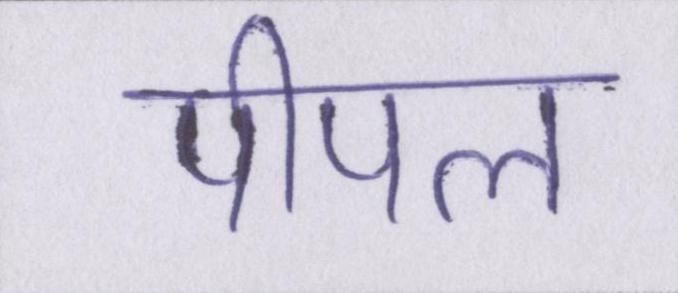 पीपल